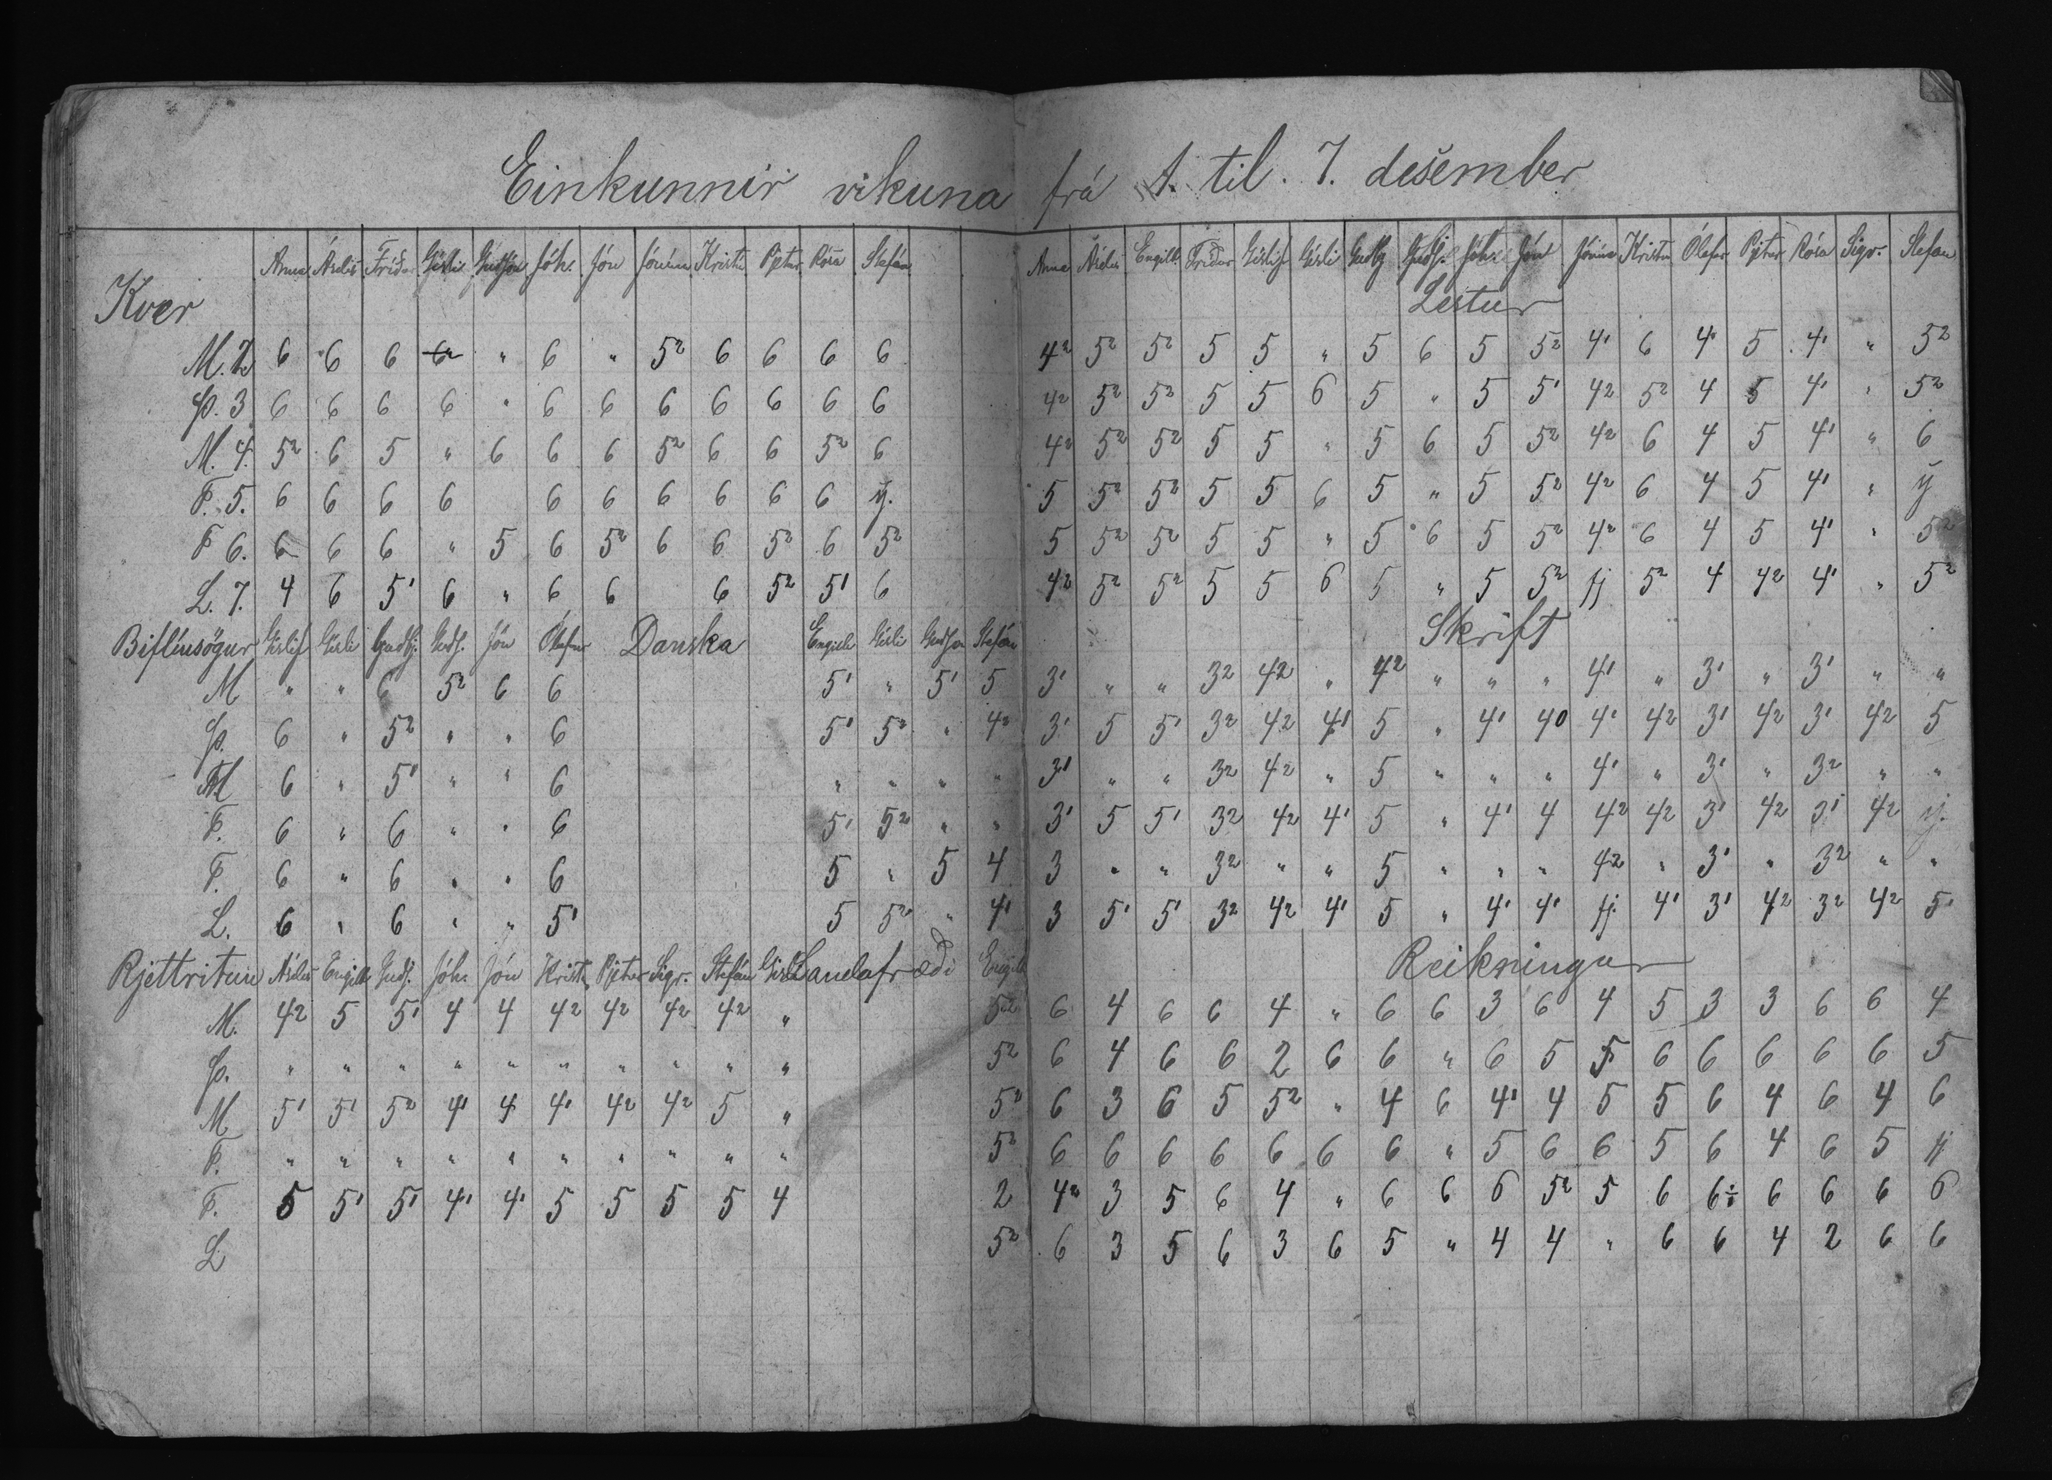 Einkunnir vikuna frá 1. til 7. desember
Anna Ásdís Fríða Gísli Guðjón Jóh. Jón Jónína Kristn Pjetur Rósa Stefán
Kver
M. 2 6 6 6 6 " 6 " 5² 6 6 6 6
Þ. 3 6 6 6 6 " 6 6 6 6 6 6 6
M. 4. 5² 6 5 " 6 6 6 5² 6 6 5² 6
F. 5. 6 6 6 6 6 6 6 6 6 6 fj.
F 6. 6 6 6 " 5 6 5² 6 6 5² 6 5²
L. 7. 4 6 5¹ 6 " 6 6 6 5² 5¹ 6
Biflíusögur Gíslíf Gísli Guðbj. Guðj. Jón Ólafur Danska Engilb Gísli Guðjón Stefán
M " " 6 5² 6 6 5¹ " 5¹ 5
Þ. 6 " 5² " " 6 5¹ 5² " 4²
M 6 " 5¹ " " 6 " " " "
F. 6 " 6 " " 6 5¹ 5² " "
F. 6 " 6 " " 6 5 " 5 4
L. 6 " 6 " " 5¹ 5 5² " 4¹
Rjettritun Ásdís Engilb Guðj. Jóh. Jón Kristn Pjetur Sigr. Stefán Gísli Landafræði Engilb
M. 4² 5 5¹ 4 4 4² 4² 4² 4² " 5²
Þ. " " " " " " " " " " 5²
M 5¹ 5¹ 5² 4¹ 4 4¹ 4² 4² 5 " 5²
F. " " " " " " " " " " 5²
F. 5 5¹ 5¹ 4¹ 4¹ 5 5 5 5 4 2
L 5²
Anna Ásdís Engilb Fríður Gíslíf Gísli Guðbj Guðj. Jóh. Jón Jónína Kristn Ólafur Pjetur Rósa Sigr. Stefán
Lestur
4² 5² 5² 5 5 " 5 6 5 5² 4¹ 6 4¹ 5 4¹ " 5²
4² 5² 5² 5 5 6 5 " 5 5¹ 4² 5² 4 5 4¹ " 5²
4² 5² 5² 5 5 " 5 6 5 5² 4² 6 4 5 4¹ " 6
5 5² 5² 5 5 6 5 " 5 5² 4² 6 4 5 4¹ " fj
5 5² 5² 5 5 " 5 6 5 5² 4² 6 4 5 4¹ " 5²
4² 5² 5² 5 5 6 5 " 5 5² fj 5² 4 4² 4¹ " 5²
Skrift
3¹ " " 3² 4² " 4² " " " 4¹ " 3¹ " 3¹ " "
3¹ 5 5¹ 3² 4² 4¹ 5 " 4¹ 40 4¹ 4² 3¹ 4² 3¹ 4² 5
3¹ " " 3² 4² " 5 " " " 4¹ " 3¹ " 3² " "
3¹ 5 5¹ 3² 4² 4¹ 5 " 4¹ 4 4² 4² 3¹ 4² 3¹ 4² fj.
3 " " 3² " " 5 " " " 4² " 3¹ " 3² " "
3 5¹ 5¹ 3² 4² 4¹ 5 " 4¹ 4¹ fj. 4¹ 3¹ 4² 3² 4² 5¹
Reikningur
6 4 6 6 4 " 6 6 3 6 4 5 3 3 6 6 4
6 4 6 6 2 6 6 " 6 5 5 6 6 6 6 6 5
6 3 6 5 5² " 4 6 4¹ 4 5 5 6 4 6 4 6
6 6 6 6 6 6 6 " 5 6 6 5 6 4 6 5 fj
4² 3 5 6 4 " 6 6 6 5² 5 6 6÷ 6 6 6 6
6 3 5 6 3 6 5 " 4 4 " 6 6 4 2 6 6